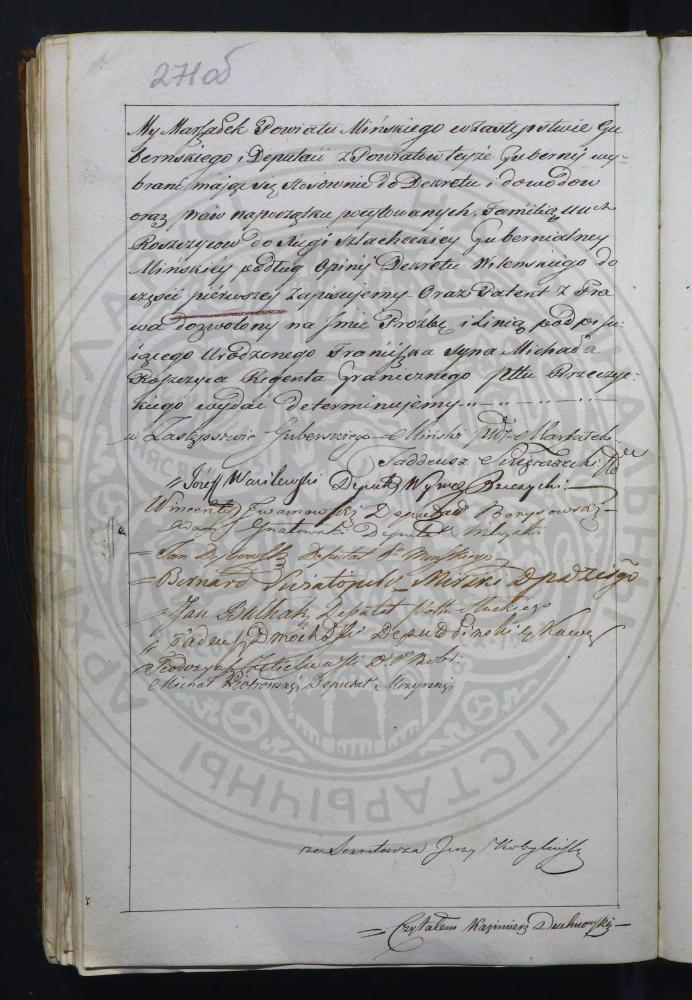 271об
My Marszałek Powiatu Mińskiego w Zastępstwie Gu
bernskiego i Deputaci z Powiatow teyże Gubernij wy-
brani maiąc się stosównie do Dekretu i dowodow
oraz praw napoczątku pocytowanych. Familią
Roszczycow do Xięgi Szlacheckiey Gubernialney
Mińskiey podług Opinij Dekretu Wilenskiego do
części piérwszey Zapisujemy. Oraz Patent z Pra
wa dozwolony na Jmie Proźbę i Linią podpisu-
iącego Urodzonego Franciszka Syna Michała
Roszczyca Regenta Granicznego Pttu Rzeczyc-
kiego wydać determinujemy
w Zastępstwie Guberskiego Miński Marszałek
Taddeusz
Józef Wasilewski Deputt Rzeczycki
Wincenty Iwanowski Deputat Borysowski
Adam Gnatowski Deputat
Jan Deputat
Bernard Swiatopełk Mirski
Jan Bułhak Deputat Słuckiego
Tadeusz Deputt Pinski
Teodozy
Michał Piotrowski Deputat Mozyrski
za Sekretarza Jerzy Kobyliński
Czytałem Kazimierz
АРХІЎ БЕЛАРУСІ
ГІСТАРЫЧНЫ